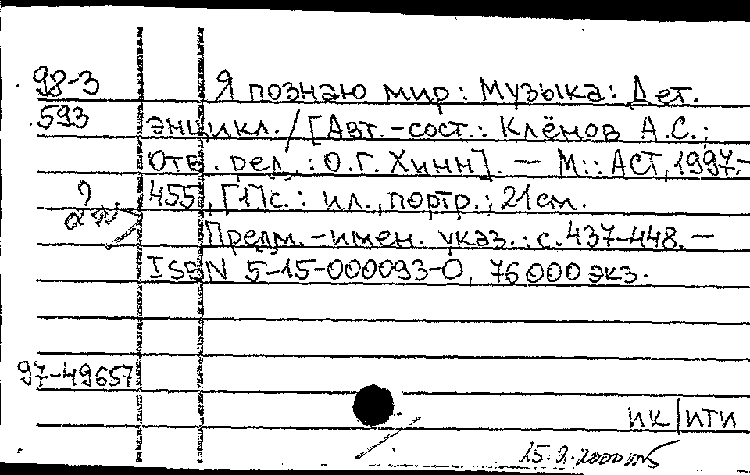 98-3 Я познаю мир: Музыка: Дет.
593 энцикл. / [Авт.-сост.: Клёнов А.С.;
Отв. ред.: О.Г. Хинн]. — М.: АСТ, 1997.-
455, [1]с.: ил., портр.; 21см.
Предм.-имен. указ.: с.437-448. —
ISBN 5-15-000093-0, 76000 экз.
97-49657
ИК|ИТИ
15.9.2000